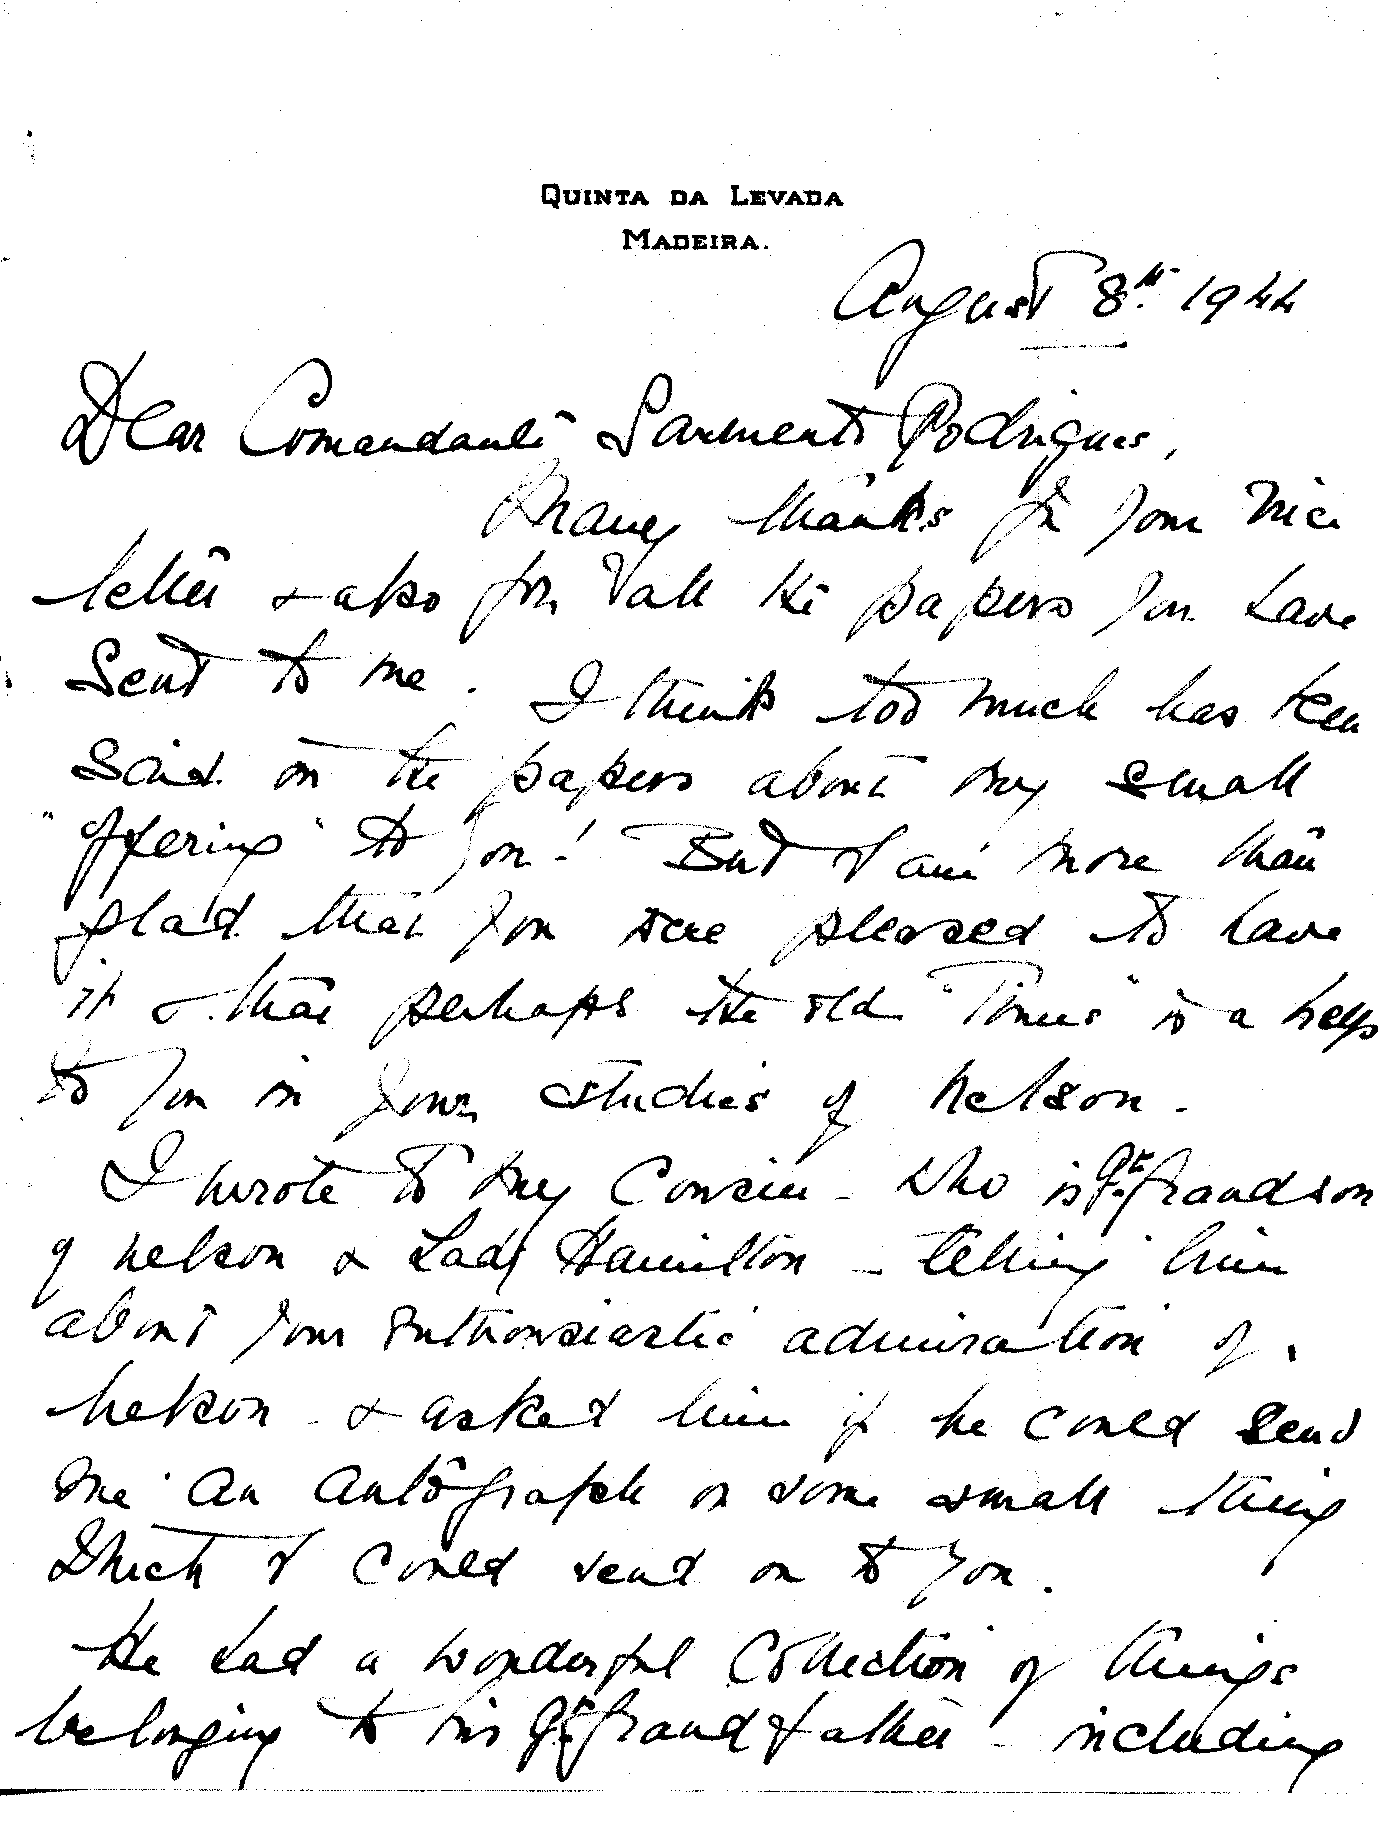 QUINTA DA LEVADA
MADEIRA.
August 8th 1944
Dear Comandante Sarmento Rodrigues,
Many thanks for your nice
letter & also for all the papers you have
sent to me. I think too much has been
said in the papers about my small
"offering" to you! But I am more than
glad that you were pleased to have
it & that perhaps the old "Times" is a help
to you in your studies of Nelson.
I wrote to my Cousin - who is Gt. grandson
of Nelson & Lady Hamilton - telling him
about your enthousiastic admiration of
Nelson - & asked him if he could send
me an autograph or some small thing
which I could send on to you.
He had a wonderful collection of things
belonging to his Gt. grandfather - including